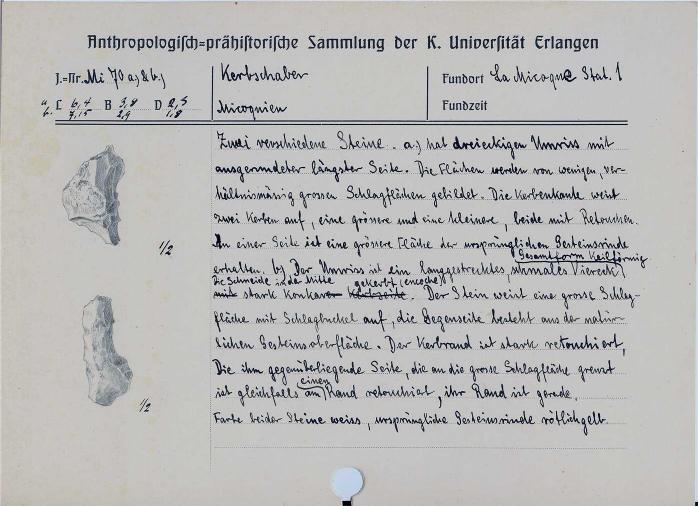 Anthropologisch=prähistorische Sammlung der K. Universität Erlangen
J.=Nr. Mi 70 a) & b)
Kerbschaber
Fundort La Micoque Stat. 1
a. L 6,4 B 3,8 D 2,5
b. 7,15 2,9 1,8
Micoquien
Fundzeit
Zwei verschiedene Steine. a.) hat dreieckigen Umriss mit
ausgerundeter längster Seite. Die Flächen werden von wenigen, ver-
hältnismässig grossen Schlagflächen gebildet. Die Kerbenkante weist
zwei Kerben auf, eine grössere und eine kleinere, beide mit Retouchen.
An einer Seite ist eine grössere Fläche der ursprünglichen Gesteinsrinde
Gesamtform Keilförmig
erhalten. b) Der Umriss ist ein langgestrecktes, schmales Viereck
Die Schneide in der Mitte gekerbt (encoche)
mit stark konkaver. Der Stein weist eine grosse Schlag-
fläche mit Schlagbuckel auf, die Gegenseite besteht aus der natür-
lichen Gesteinsoberfläche. Der Kerbrand ist stark retouchiert,
Die ihm gegenüberliegende Seite, die an die grosse Schlagfläche grenzt
einen
ist gleichfalls am Rand retouchiert, ihr Rand ist gerade.
Farbe beider Steine weiss, ursprüngliche Gesteinsrinde rötlichgelb.
1/2
1/2